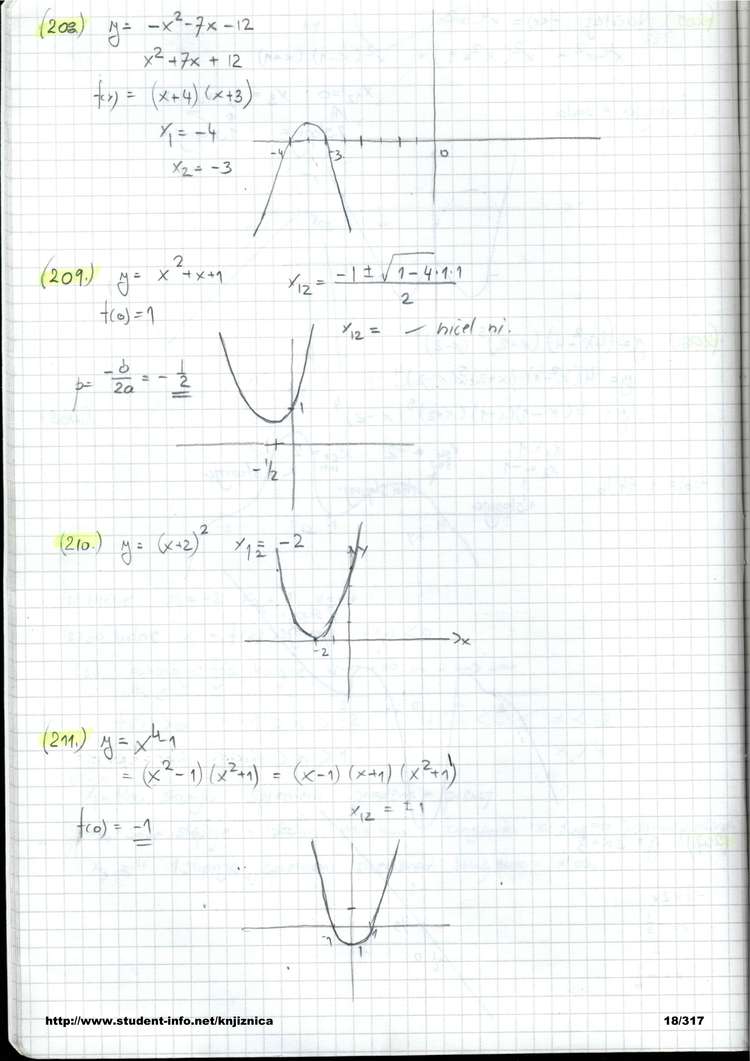 (208.) y = -x² - 7x - 12
x² + 7x + 12
f(x) = (x+4) (x+3)
x₁ = -4
x₂ = -3
-4 -3 0
(209.) y = x² + x + 1 x₁₂ = (-1 ± √(1-4·1·1))/2
f(0) = 1
x₁₂ = — ničel ni.
p = -b/2a = -1/2
1
-1/2
(210.) y = (x+2)² x₁₂ = -2
y
x
-2
(211.) y = x⁴-1
= (x²-1) (x²+1) = (x-1) (x+1) (x²+1)
x₁₂ = ±1
f(0) = -1
-1 1
1
http://www.student-info.net/knjiznica 18/317